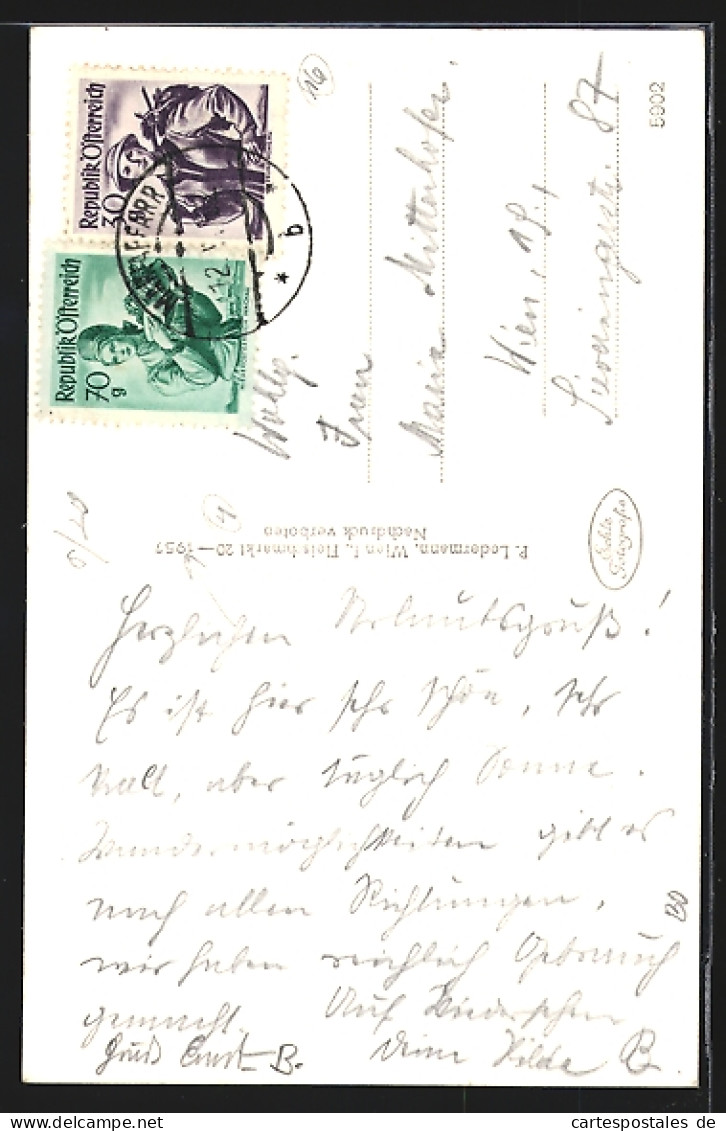 Republik Österreich
30
Republik Österreich
70
g
MARIAPFARR
b
16
4
5902
Wohlg.
Frau
Maria Mitterhofer.
Wien, 19.,
Sieveringerstr. 87
P. Ledermann, Wien I., Fleischmarkt 20—1957
Nachdruck verboten
Echte
Fotografie
Herzlichen Urlaubsgruß!
Es ist hier sehr schön, sehr
kalt, aber täglich Sonne.
Wandermöglichkeiten gibt es
nach allen Richtungen,
wir haben reichlich Gebrauch
gemacht. Auf Wiedersehen
Deine Hilde B.
B.
cartespostales de – delcampe